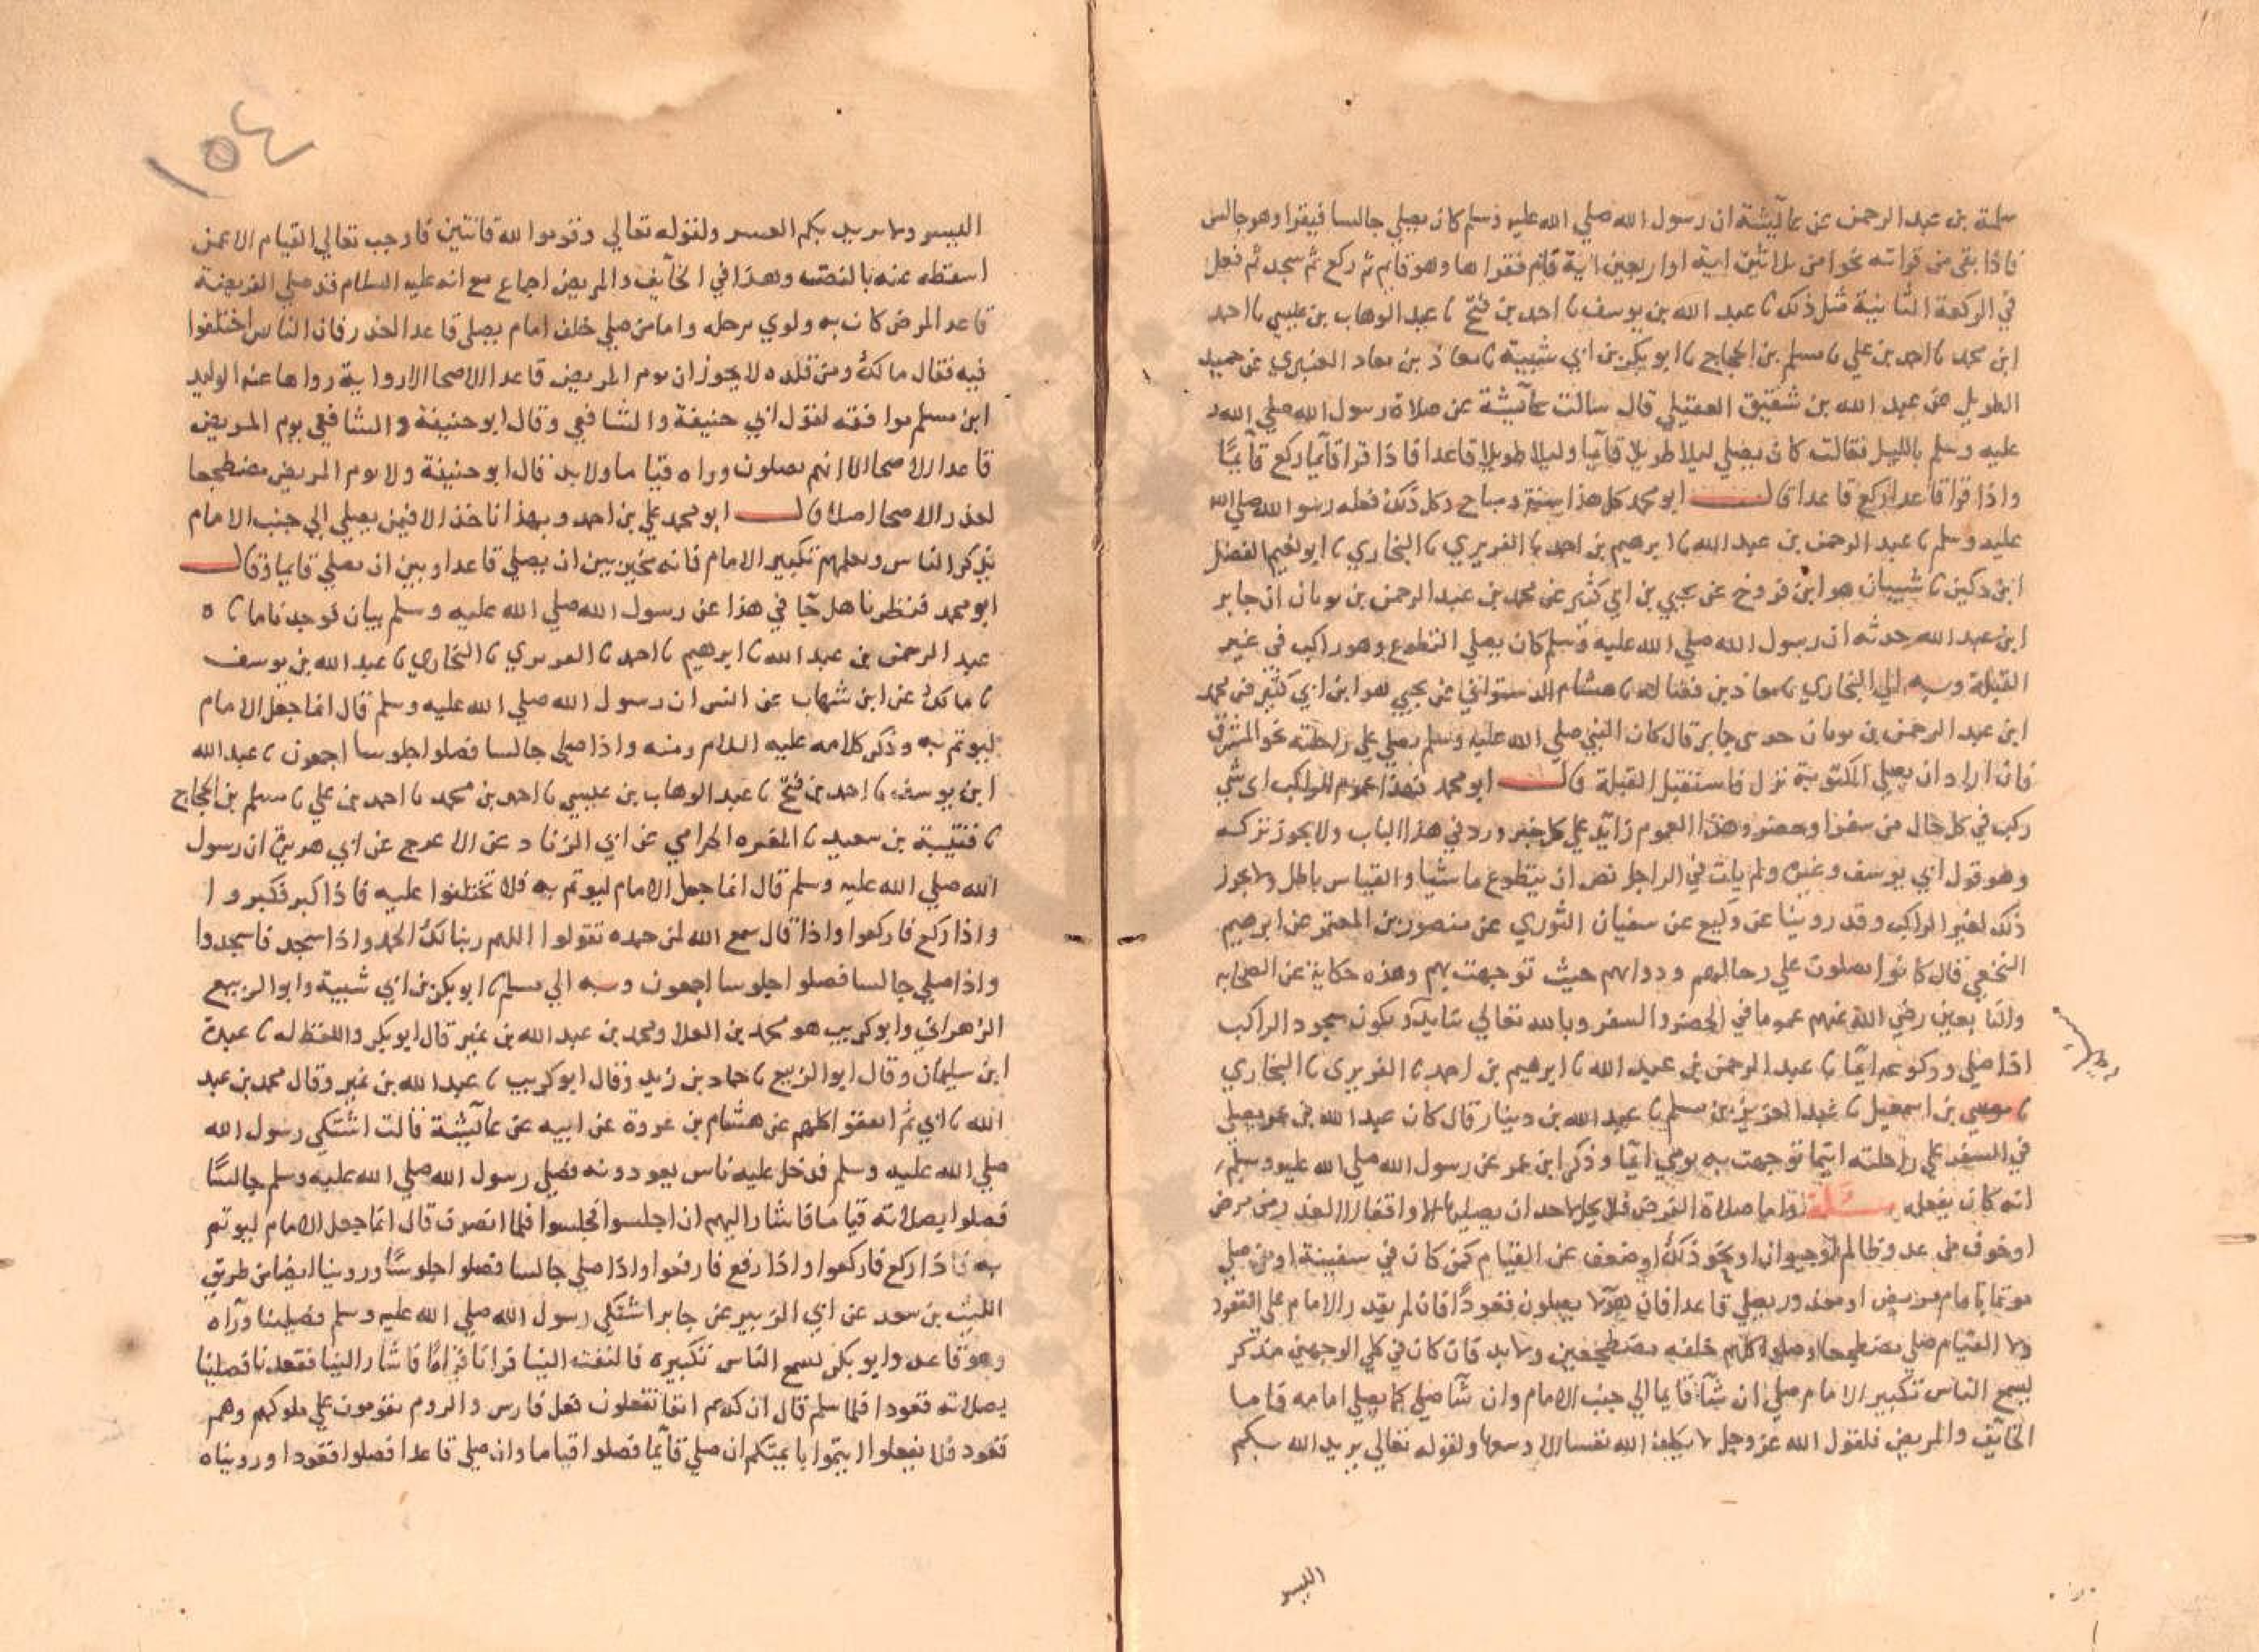 سلمة بن عبد الرحمن عن عآئيشة ان رسول الله صلي الله عليه وسلم كان يصلي جالسا فيقرا وهو جالس
فاذا بقي من قراته نحوا من ثلاثين اية او اربعين اية قام فقراها وهو قايم ثم ركع ثم سجد ثم فعل
في الركعة الثانية مثل ذلك نا عبد الله بن يوسف نا احمد بن فتح نا عبد الوهاب بن عيسي نا احمد
ابن محمد نا احمد بن علي نا مسلم بن الحجاج نا ابو بكر بن ابي شيبة نا معاذ بن معاد العنبري عن حميد
الطويل عن عبد الله بن شقيق العقيلي قال سالت عآئيشة عن صلاة رسول الله صلي الله
عليه وسلم بالليل فقالت كان يصلي ليلا طويلا قآيما وليلا طويلا قاعدا فاذا قرا قآيما ركع قآيمًا
واذا قرا قاعدا ركع قاعدا قال ابو محمد كل هذا سنة ومباح وكل ذلك فعله رسول الله صلي الله
عليه وسلم نا عبد الرحمن بن عبد الله نا ابرهيم بن احمد نا الفريري نا البخاري نا ابو نعيم الفضل
ابن دكين نا شيبان هو ابن فروخ عن يحيي بن ابي كثير عن محمد بن عبد الرحمن بن ثوبان ان جابر
ابن عبد الله حدثه ان رسول الله صلي الله عليه وسلم كان يصلي التطوع وهو راكب في غير
القبلة وبه الي البخاري نا معاذ بن فضالة نا هشام الدستواني عن يحيي هو ابن ابي كثير عن محمد
ابن عبد الرحمن بن ثوبان حدثني جابر قال كان النبي صلي الله عليه وسلم يصلي علي راحلته نحو المشرق
فان اراد ان يصلي المكتوبة نزل فاستقبل القبلة قال ابو محمد فهذا عموم للراكب اي شي
ركب في كل حال من سفر او حضر وهذا العموم زايد علي كل خبر ورد في هذا الباب ولا يجوز تركه
وهو قول ابي يوسف وغيره ولم يات في الراجل نص ان يتطوع ماشيا والقياس باطل ولا يجوز
ذلك لغير الراكب وقد روينا عن وكيع عن سفيان الثوري عن منصور بن المعتمر عن ابرهيم
النخعي قال كانوا يصلون علي رحالهم ودوابهم حيث توجهت بهم وهذه حكاية عن الصحابه
والتابعين رضي الله عنهم عموما في الحضر والسفر وبالله تعالي نتايد ويكون سجود الراكب
اذا صلي وركوعه ايمآ نا عبد الرحمن بن عبد الله نا ابرهيم بن احمد نا الفريري نا البخاري
نا موسي بن اسمعيل نا عبد العزيز بن مسلم نا عبد الله بن دينار قال كان عبد الله بن عمر يصلي
في السفر علي راحلته اينما توجهت به يومي ايمآ وذكر ابن عمر عن رسول الله صلي الله عليه وسلم
انه كان يفعله مسئلة واما صلاة الفرض فلا يحل لاحد ان يصليها الا واقفا الا لعذر من مرض
او خوف من عدو ظالم او حيوان او نحو ذلك او ضعف عن القيام كمن كان في سفينة او من صلي
موتما بامام مريض او معذور يصلي قاعدا فان هولا يصلون قعودًا فان لم يقدر الامام علي القعود
ولا القيام صلي مضطجعا وصلوا كلهم خلفه مضطجعين ولا بد فان كان في كلي الوجهين مذكر
يسمع الناس تكبير الامام صلي ان شآ قايما الي جنب الامام وان شآ صلي كما يصلي امامه فاما
الخآيف والمريض فلقول الله عز وجل لا يكلف الله نفسا الا وسعها ولقوله تعالي يريد الله بكم
اليسر
١٥٤
اليسر ولا يريد بكم العسر ولقوله تعالي وقوموا لله قانتين فاوجب تعالي القيام الا عمن
اسقطه عنه بالنص وهذا في الخآيف والمريض اجماع مع انه عليه السلام قد صلي الفريضة
قاعدا لمرض كان به ولوي برجله واما من صلي خلف امام يصلي قاعدا لعذر فان الناس اختلفوا
فيه فقال مالك ومن قلده لا يجوز ان يوم المريض قاعدا الاصحا الا رواية رواها عنه الوليد
ابن مسلم موافقه لقول ابي حنيفة والشافعي وقال ابو حنيفة والشافعي يوم المريض
قاعدا الاصحا الا انهم يصلون وراه قياما ولا بد قال ابو حنيفة ولا يوم المريض مضطجعا
لعذر الاصحا اصلا قال ابو محمد علي بن احمد وبهذا ناخذ الا فيمن يصلي الي جنب الامام
يذكر الناس ويعلمهم تكبير الامام فانه مخير بين ان يصلي قاعدا وبين ان يصلي قايما وقال
ابو محمد فنظرنا هل جآ في هذا عن رسول الله صلي الله عليه وسلم بيان فوجدنا ما نا
عبد الرحمن بن عبد الله نا ابرهيم نا احمد نا الفريري نا البخاري نا عبد الله بن يوسف
نا مالك عن ابن شهاب عن انس ان رسول الله صلي الله عليه وسلم قال انما جعل الامام
ليوتم به وذكر كلامه عليه السلام ومنه واذا صلي جالسا فصلوا جلوسا اجمعون نا عبد الله
ابن يوسف نا احمد بن فتح نا عبد الوهاب بن عيسي نا احمد بن محمد نا احمد بن علي نا مسلم بن الحجاج
نا قتيبة بن سعيد نا المغيره الحزامي عن ابي الزناد عن الاعرج عن ابي هريرة ان رسول
الله صلي الله عليه وسلم قال انما جعل الامام ليوتم به فلا تختلفوا عليه فاذا كبر فكبروا
واذا ركع فاركعوا واذا قال سمع الله لمن حمده فقولوا اللهم ربنا لك الحمد واذا سجد فاسجدوا
واذا صلي جالسا فصلوا جلوسا اجمعون وبه الي مسلم نا ابو بكر بن ابي شيبة وابو الربيع
الزهراني وابو كريب هو محمد بن العلا ومحمد بن عبد الله بن نمير قال ابو بكر واللفظ له نا عبدة
ابن سليمان وقال ابو الربيع نا حماد بن زيد وقال ابو كريب نا عبد الله بن نمير وقال محمد بن عبد
الله نا ابي ثم اتفقوا كلهم عن هشام بن عروة عن ابيه عن عآئيشة قالت اشتكي رسول الله
صلي الله عليه وسلم فدخل عليه ناس يعودونه فصلي رسول الله صلي الله عليه وسلم جالسًا
فصلوا بصلاته قياما فاشار اليهم ان اجلسوا فجلسوا فلما انصرف قال انما جعل الامام ليوتم
به فاذا ركع فاركعوا واذا رفع فارفعوا واذا صلي جالسا فصلوا جلوسًا وروينا ايضا من طريق
الليث بن سعد عن ابي الزبير عن جابر اشتكي رسول الله صلي الله عليه وسلم فصلينا ورآه
وهو قاعد وابو بكر يسمع الناس تكبيره فالتفت الينا فرانا قيامًا فاشار الينا فقعدنا فصلينا
بصلاته قعودا فلما سلم قال ان كدتم انفا تفعلون فعل فارس والروم يقومون علي ملوكهم وهم
قعود فلا تفعلوا ايتموا بايمتكم ان صلي قآيما فصلوا قياما وان صلي قاعدا فصلوا قعودا ورويناه